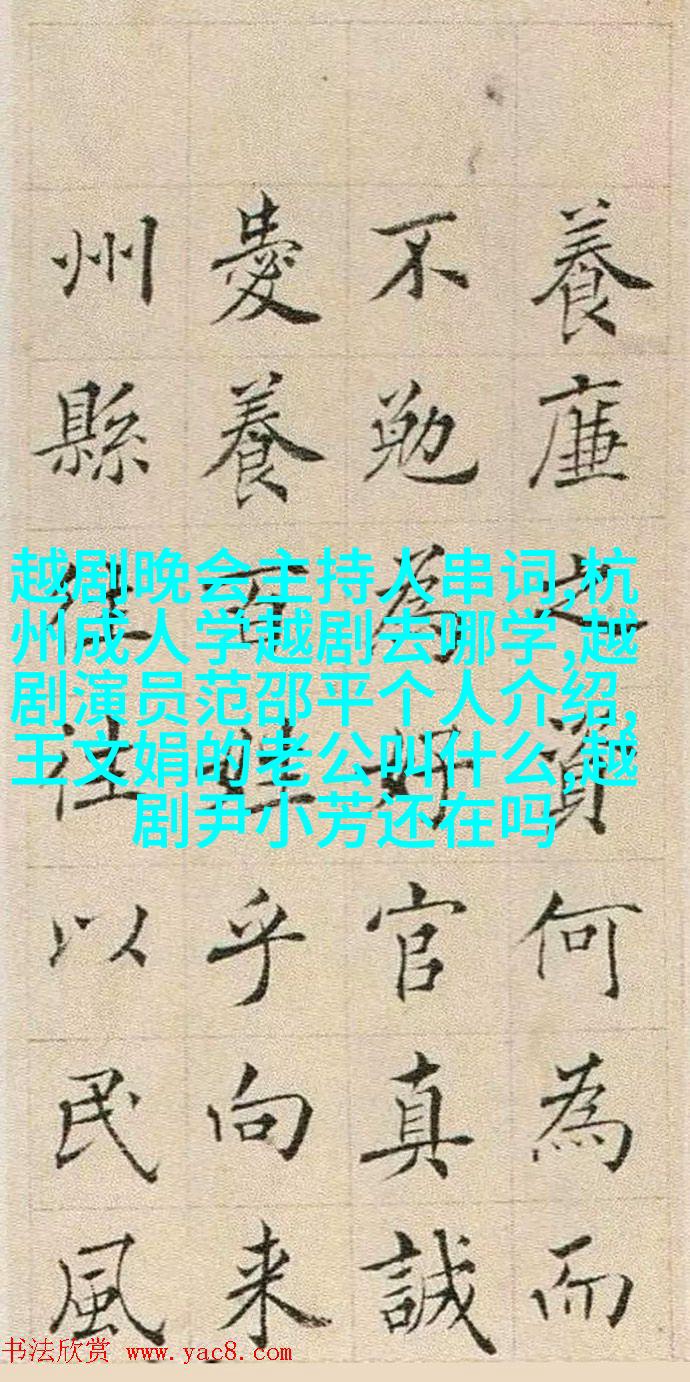 養廉之資何為而
不勉為好官真誠
愛養百姓乎向来
州縣往往以民風
越剧晚会主持人串词,杭
州成人学越剧去哪学,越
剧演员范邵平个人介绍,
王文娟的老公叫什么,越
剧尹小芳还在吗
书法欣赏 www.yac8.com